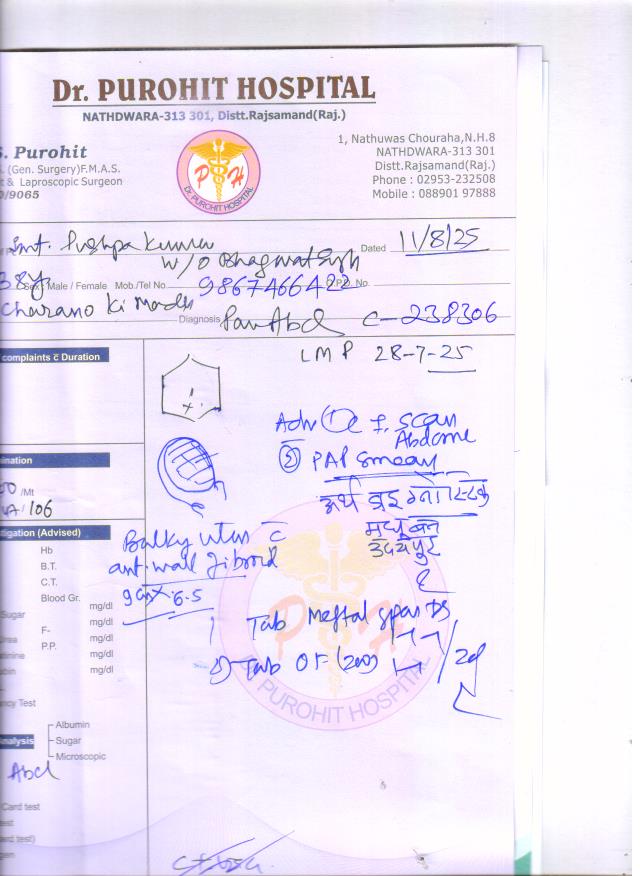 Dr. PUROHIT HOSPITAL
NATHDWARA-313 301, Distt.Rajsamand(Raj.)
S. Purohit
. (Gen. Surgery)F.M.A.S.
t & Laproscopic Surgeon
0/9065
1, Nathuwas Chouraha,N.H.8
NATHDWARA-313 301
Distt.Rajsamand(Raj.)
Phone : 02953-232508
Mobile : 088901 97888
DR. PUROHIT HOSPITAL
P H
Smt. Pushpa Kunwar
Dated 11/8/25
W/O Bhagwat Singh
38y Sex: Male / Female Mob./Tel No. 9867466422 O.P.D. No.
Charano Ki Madri
Diagnosis Pain Abd C-238306
complaints c̄ Duration
LMP 28-7-25
Adv ① scan
Abdome
② PAP Smear
mination
/Mt
/106
tigation (Advised)
Hb
B.T.
C.T.
Blood Gr.
mg/dl
Sugar F- mg/dl
P.P. mg/dl
mg/dl
मधुबन
उदयपुर
Bulky uterus c̄
ant. wall fibroid
9 cm x 6.5
1 Tab Meftal spas DS
2) Tab OF (200)
ncy Test
nalysis
Albumin
Sugar
Microscopic
Abd
Card test
est
ard test)
gen
DR. PUROHIT HOSPITAL